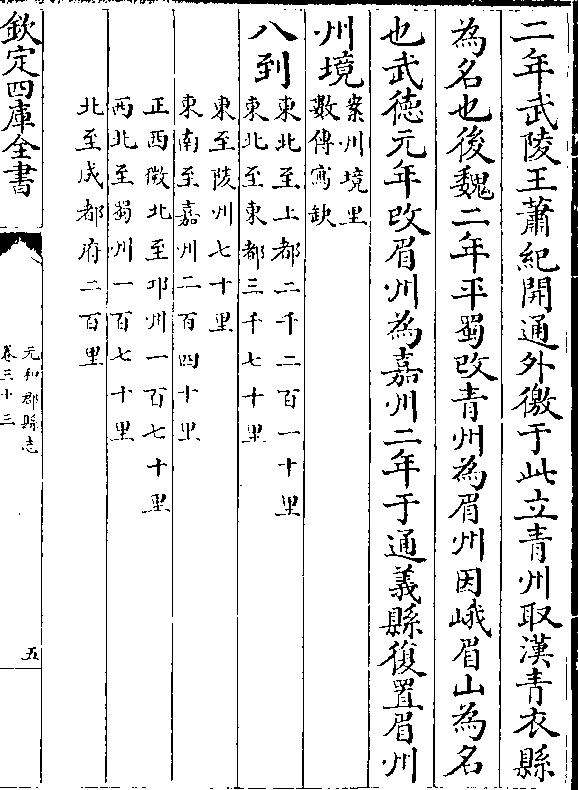 二年武陵王蕭紀開通外徼于此立青州取漢青衣縣
為名也後魏二年平蜀改青州為眉州因峨眉山為名
也武德元年改眉州為嘉州二年于通義縣復置眉州
州境案州境里
數傳寫缺
八到東北至上都二千二百一十里
東北至東都三千七十里
東至陵州七十里
東南至嘉州二百四十里
正西微北至邛州一百七十里
西北至蜀州一百七十里
北至成都府二百里
欽定四庫全書
元和郡縣志
卷三十三
五